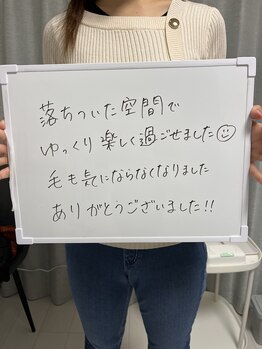 落ちついた空間で
ゆっくり楽しく過ごせました☺
毛も気にならなくなりました
ありがとうございました!!